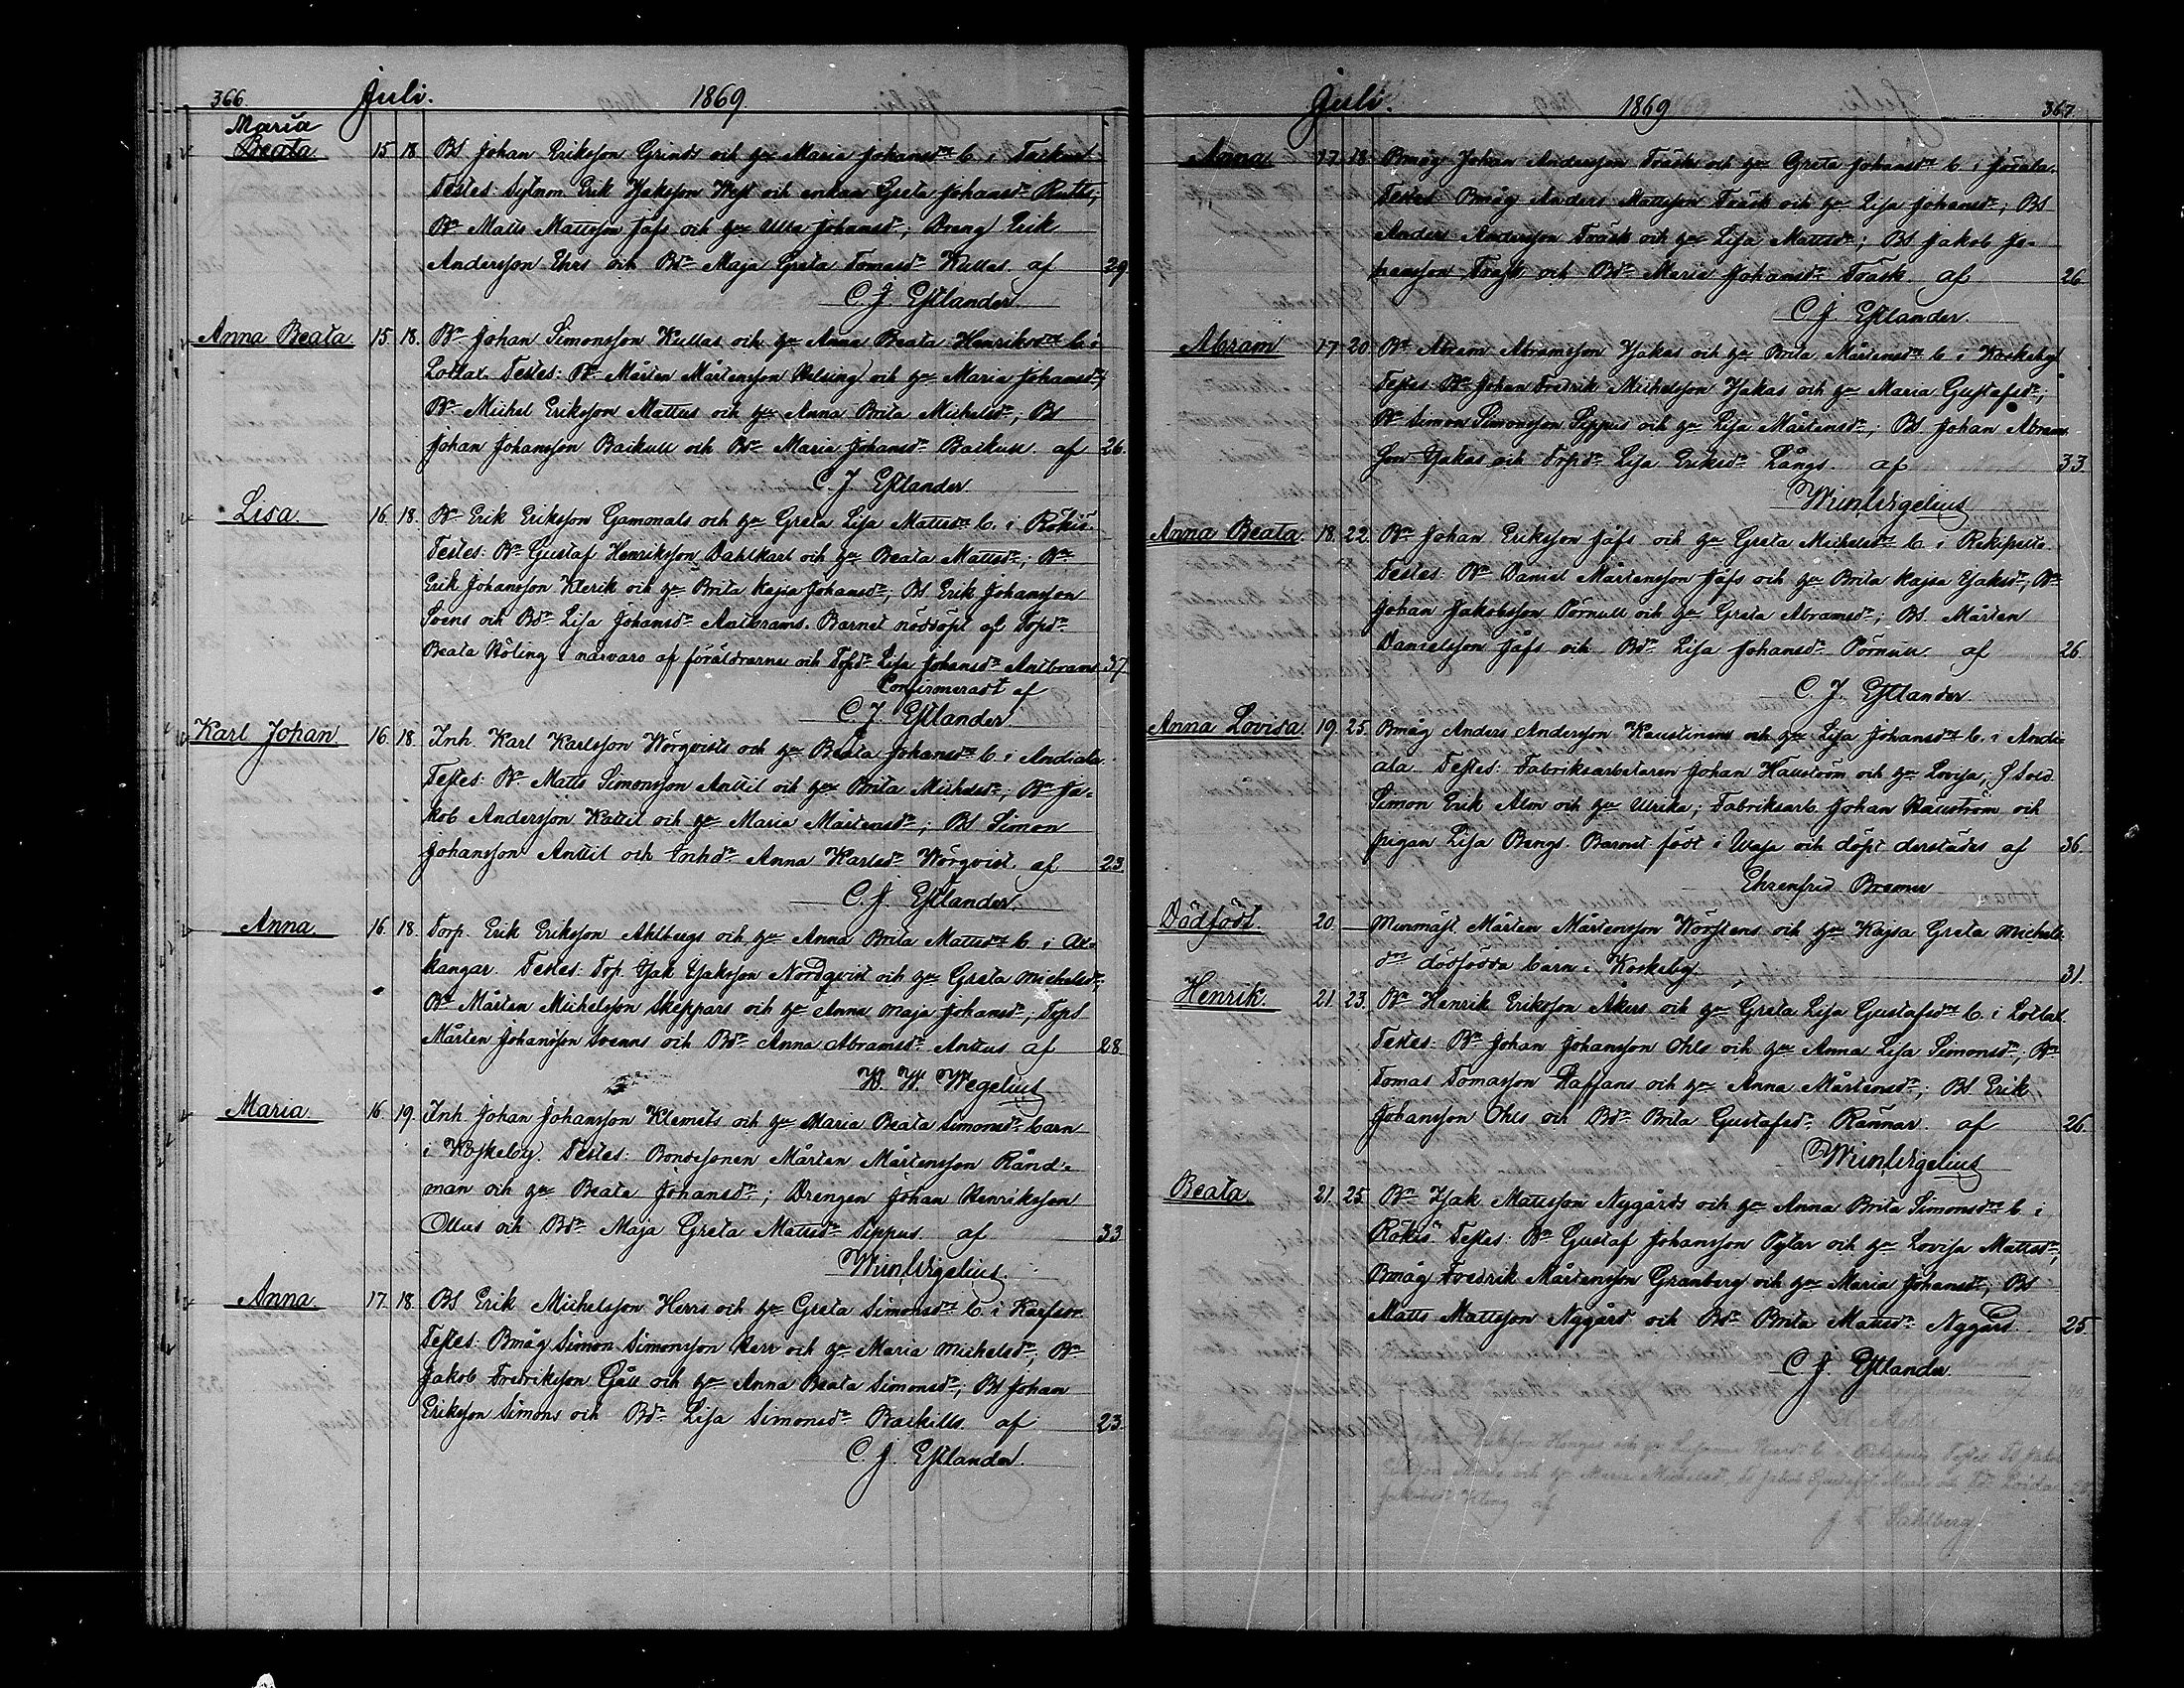 366. Juli. 1869.
Maria
Beata. 15 18 BS Johan Eriksson Grinds och hu Maria Johansdr b. i
Testes: Sytnom. Erik Isaksson West och enkan Greta Johansdr
Bn Matts Mattsson Jåfs och hu Ulla Johansdr; Dreng Erik
Andersson Ehrs och Bdr Maja Greta Tomasdr Kullas. af 29
C. J. Estlander
Anna Beata. 15. 18. Bn Johan Simonsson Kullas och hu Anna Beata Henriksdr b. i
Lottax. Testes: Bn Mårten Mårtensson Helsing och hu Maria Johansdr;
Bn Michel Eriksson Mattus och hu Anna Brita Michelsdr; BS
Johan Johansson Backull och Bdr Maria Johansdr Backull. af 26.
C. J Estlander.
Lisa. 16. 18. Bn Erik Eriksson Gamonals och hu Greta Lisa Mattsdr b. i Rökiö.
Testes: Bn Gustaf Henriksson Dahlkarl och hu Beata Mattsdr; Bn
Erik Johansson Klerik och hu Brita Kajsa Johansdr; BS Erik Johansson
Svens och Bdr Lisa Johansdr Antbrams. Barnet nöddöpt af Torpdr
Beata Höling i närvaro af föräldrarne och Torpdr Lisa Johansdr Antbrams. 37
Confirmeradt af
C. J Estlander.
Karl Johan. 16. 18. Inh. Karl Karlsson Wörqvists och hu Beata Johansdr b. i Andiala.
Testes: Bn Matts Simonsson Anttil och hu Brita Michelsdr; Bn Ja-
kob Andersson Kattil och hu Maria Mårtensdr; BS Simon
Johansson Anttil och Inhdr Anna Karlsdr Wörqvist. af 23
C. J. Estlander.
Anna. 16. 18. Torp. Erik Eriksson Ahlbergs och hu Anna Brita Mattsdr b. i Al-
kangar. Testes: Torp. Isak Isaksson Nordqvist och hu Greta Michelsdr;
Bn Mårten Michelsson Skeppars och hu Anna Maja Johansdr; TorpS
Mårten Johansson Svenns och Bdr Anna Abramsdr Anttus af 28
W. W. Wegelius
Maria. 16. 19. Inh Johan Johansson Klemets och hu Maria Beata Simonsdr barn
i Koskeby. Testes: Bondesonen Mårten Mårtensson Ränd-
man och hu Beata Johansdr; Drengen Johan Henriksson
Ollus och Bdr Maja Greta Mattsdr Sippus. af 33
Wm Wegelius.
Anna. 17. 18. BS Erik Michelsson Herrs och hu Greta Simonsdr b. i Karfsor.
Testes: Bmåg Simon Simonsson Herr och hu Maria Michelsdr; Bn
Jakob Fredriksson Gåll och hu Anna Beata Simonsdr; BS Johan
Eriksson Simons och Bdr Lisa Simonsdr Backills. af 23.
C. J. Estlander.
Juli. 1869 367.
Anna 17. 18. Bmåg Johan Andersson Träsks och hu Greta Johansdr b. i Jörala.
Testes: Bmåg Anders Mattsson Träsk och hu Lisa Johansdr; BS
Anders Andersson Träsk och hu Lisa Mattsdr; BS Jakob Jo-
hansson Träsk och Bdr Maria Johansdr Träsk. af 26.
C. J. Estlander.
Abram 17 20. Bn Abram Abramsson Isakas och hu Brita Mårtensdr b. i Koskeby
Testes: Bn Johan Fredrik Michelsson Isakas och hu Maria Gustafsdr;
Bn Simon Simonsson Sippus och hu Lisa Mårtensdr; BS. Johan Abrams
son Isakas och Torpdr Lisa Eriksdr Långs. af 33.
Wm Wegelius
Anna Beata. 18. 22. Bn Johan Eriksson Jåfs och hu Greta Michelsdr b. i Rekipeldo.
Testes: Bn Daniel Mårtensson Jåfs och hu Brita Kajsa Isaksdr; Bn
Johan Jakobsson Pörnull och hu Greta Abramsdr; BS. Mårten
Danielsson Jåfs och Bdr Lisa Johansdr Pörnull. af 26.
C. J. Estlander.
Anna Lovisa. 19. 25. Bmåg Anders Andersson Kaustinens och hu Lisa Johansdr b. i Andi-
ala. Testes: Fabriksarbetaren Johan Hällström och hu Lovisa; f Sold.
Simon Erik Alm och hu Ulrika; Fabriksarb. Johan Hällström och
pigan Lisa Bengs. Barnet född i Wasa och döpt derstädes af 36.
Ehrenfrid Bremer
Dödfödt. 20. — Murmäst. Mårten Mårtensson Wörstens och hu Kajsa Greta Michels-
drs dödfödda barn i Koskeby. 31.
Henrik. 21. 23. Bn Henrik Eriksson Åkers och hu Greta Lisa Gustafsdr b. i Lottax.
Testes: Bn Johan Johansson Ohls och hu Anna Lisa Simonsdr; Bn
Tomas Tomasson Staffans och hu Anna Mårtensdr; BS. Erik
Johansson Ohls och Bdr Brita Gustafsdr Rännar. af 26.
Wm Wegelius
Beata 21. 25. Bn Isak Mattsson Nygårds och hu Anna Brita Simonsdr b. i
Rökiö. Testes: Bn Gustaf Johansson Pytar och hu Lovisa Mattsdr;
Bmåg Fredrik Mårtensson Granberg och hu Maria Johansdr; BS
Matts Mattsson Nygård och Bdr Brita Mattsdr Nygård. 25
C. J. Estlander.